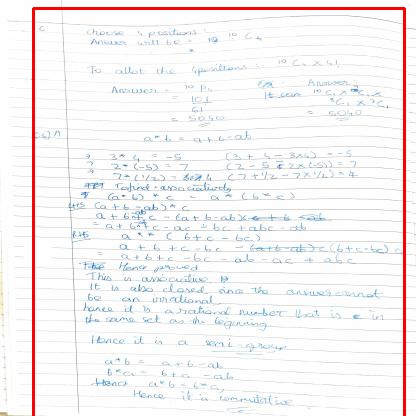 c choose 4 positions
Answer will be = ¹⁰C₄
To allot the 4 positions = ¹⁰C₄ × 4!
Answer = ¹⁰P₄
= 10!
6!
= 5040
Answer =
It can ¹⁰C₁ × ⁹C₁ ×
⁸C₁ × ⁷C₁
= 5040
A
a*b = a+b-ab
3*4 = -5 (3+4-3×4) = -5
2*(-5) = 7 (2-5-2×(-5)) = 7
7*(1/2) = 4 (7+1/2-7×1/2) = 4
To find associatively
(a*b)*c = a*(b*c)
LHS (a+b-ab)*c
= a+b+c-ac-bc+abc-ab
RHS a*(b+c-bc)
a+b+c-bc-(b+c-bc)a
= a+b+c-bc-ab-ac+abc
Hence proved
This is associative
It is also closed, since the answer cannot
be an irrational.
hence it is a rational number that is in
the same set as the beginning
Hence it is a semi-group
a*b = a+b-ab
b*a = b+a-ab
Hence a*b = b*a,
Hence it is commutative